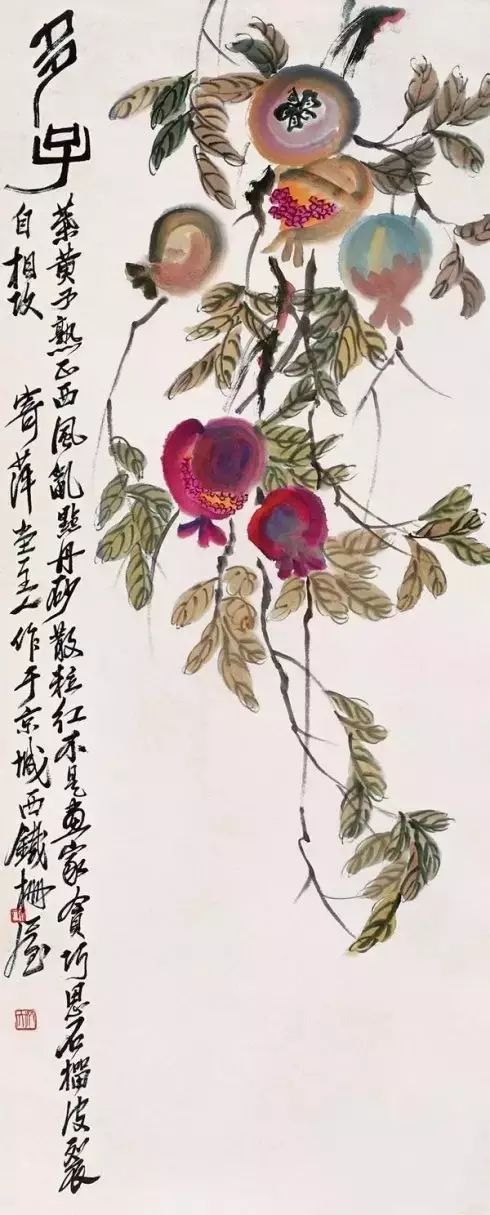 多子
蒸黄子熟正西风乱點丹砂散粒红不是画家夤巧思石榴皮裂
自相攻
寄萍堂主人作于京城西鐵栅屋